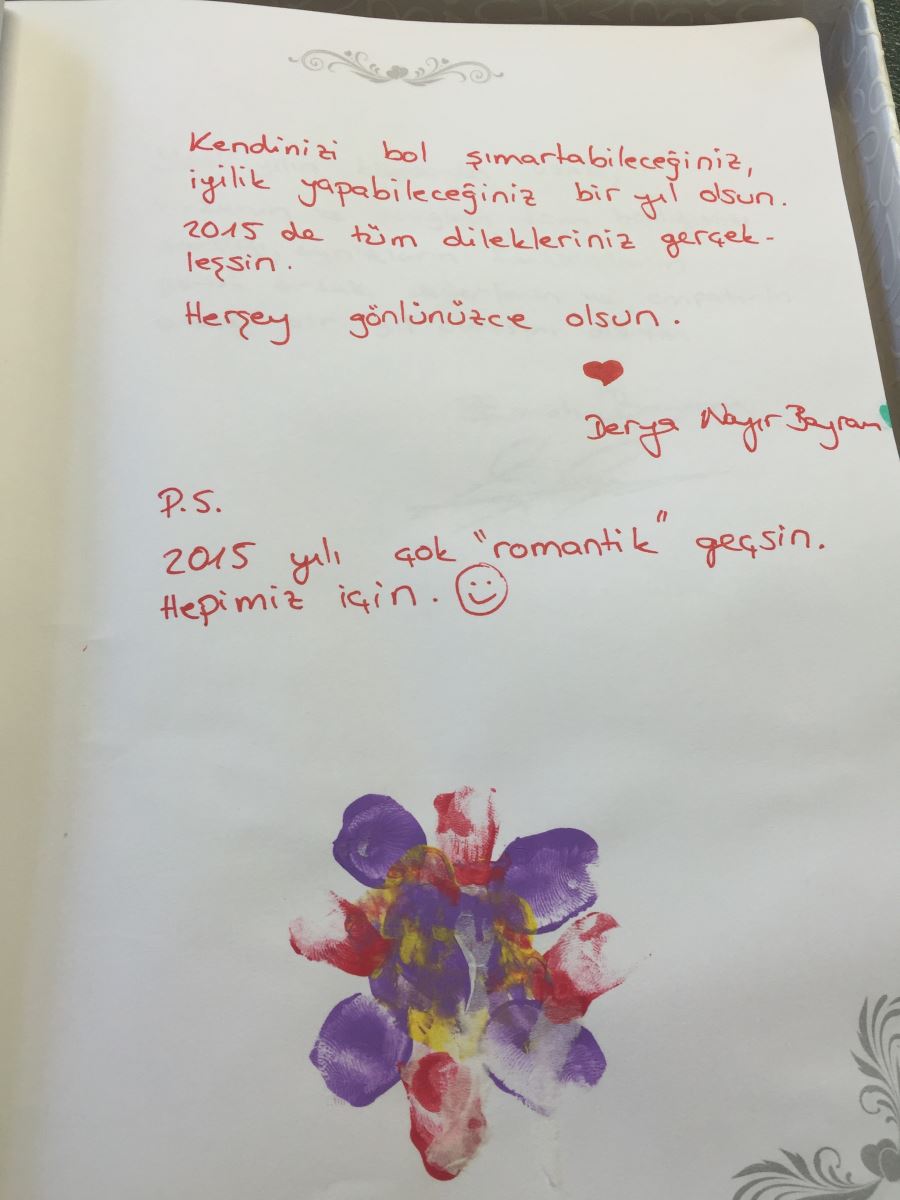 Kendinizi bol şımartabileceğiniz,
iyilik yapabileceğiniz bir yıl olsun.
2015 de tüm dilekleriniz gerçek-
leşsin.
Herşey gönlünüzce olsun.
Derya Nayır Bayram
P.S.
2015 yılı çok "romantik" geçsin.
Hepimiz için.